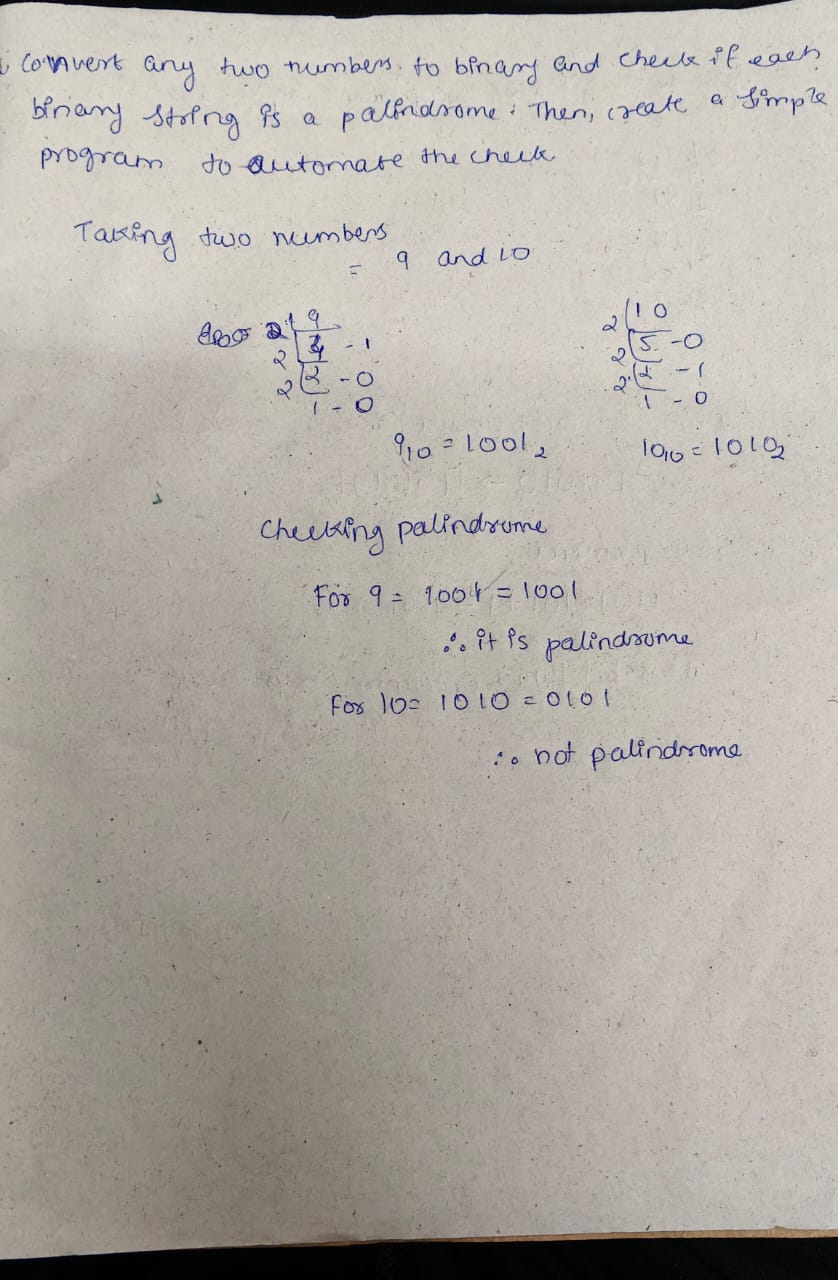 Convert any two numbers to binary and check if each
binary string is a palindrome. Then, create a simple
program to automate the check.
Taking two numbers
= 9 and 10
2 9 2 10
2 4 - 1 2 5 - 0
2 2 - 0 2 2 - 1
1 - 0 1 - 0
9₁₀ = 1001₂ 10₁₀ = 1010₂
Checking palindrome
For 9 = 1001 = 1001
∴ it is palindrome
For 10 = 1010 = 0101
∴ not palindrome